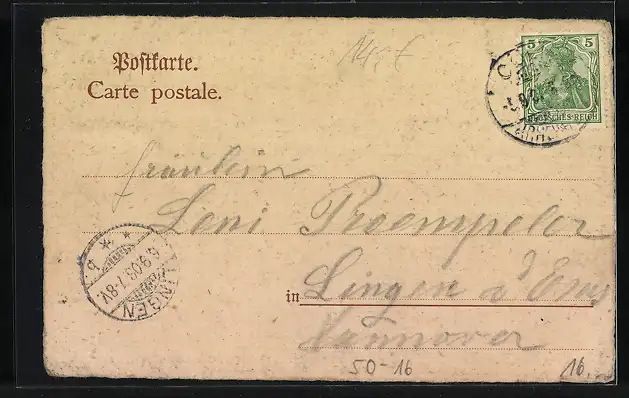 Postkarte.
Carte postale.
5 5
DEUTSCHES REICH
Fräulein
Leni Proempeler
in Lingen a/d Ems
Hannover
LINGEN
6.9.05.7-8V.
* b
50-16
16.